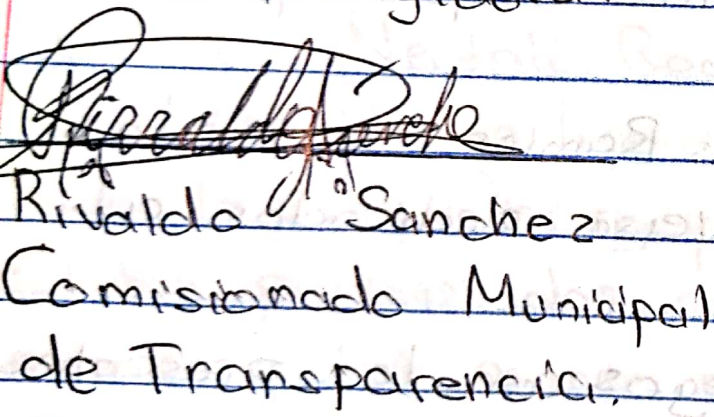 Rivaldo Sanchez
Comisionado Municipal
de Transparencia.